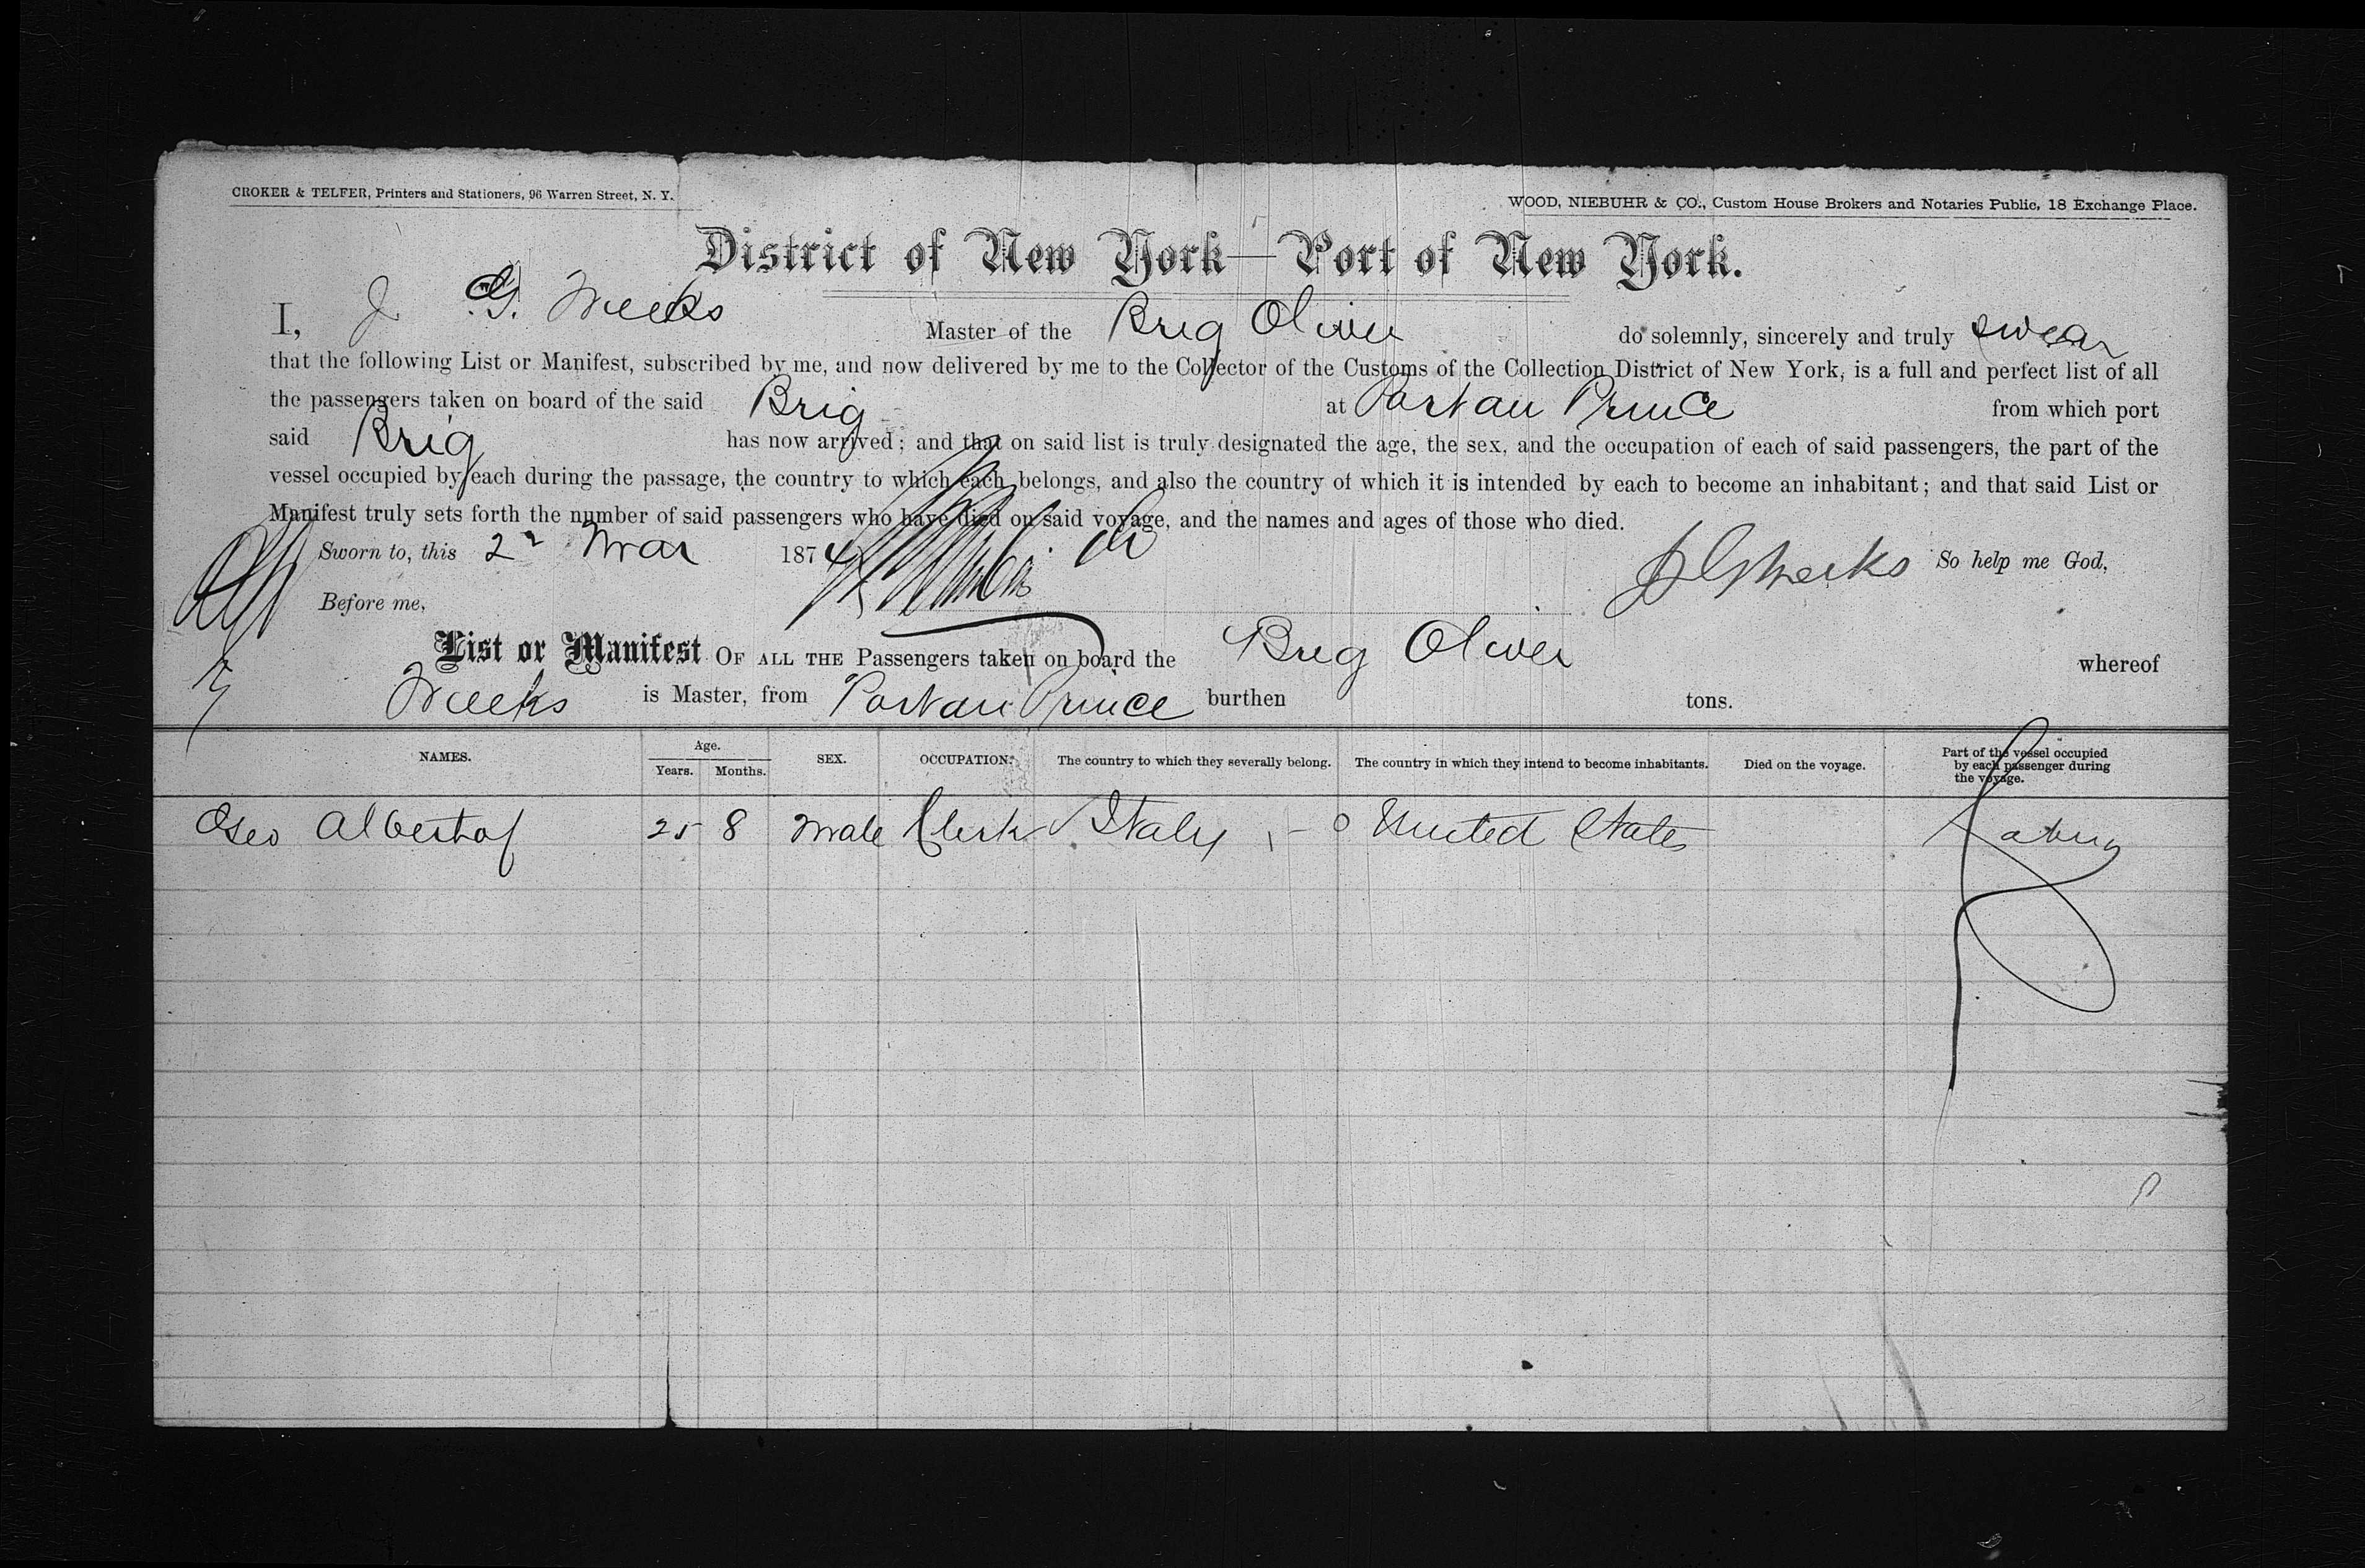 CROKER & TELFER, Printers and Stationers, 96 Warren Street, N. Y.
WOOD, NIEBUHR & CO., Custom House Brokers and Notaries Public, 18 Exchange Place.
District of New York—Port of New York.
I, J G. Weeks Master of the Brig Oliver do solemnly, sincerely and truly swear
that the following List or Manifest, subscribed by me, and now delivered by me to the Collector of the Customs of the Collection District of New York, is a full and perfect list of all
the passengers taken on board of the said Brig at Port au Prince from which port
said Brig has now arrived; and that on said list is truly designated the age, the sex, and the occupation of each of said passengers, the part of the
vessel occupied by each during the passage, the country to which each belongs, and also the country of which it is intended by each to become an inhabitant; and that said List or
Manifest truly sets forth the number of said passengers who have died on said voyage, and the names and ages of those who died.
Sworn to, this 2 Mar 1874 J G Weeks So help me God,
Before me,
List or Manifest OF ALL THE Passengers taken on board the Brig Oliver whereof
Weeks is Master, from Port au Prince burthen tons.
NAMES. Age. Years. Months. SEX. OCCUPATION. The country to which they severally belong. The country in which they intend to become inhabitants. Died on the voyage. Part of the vessel occupied by each passenger during the voyage.
Geo Alberhof 25 8 Male Clerk Italy United States